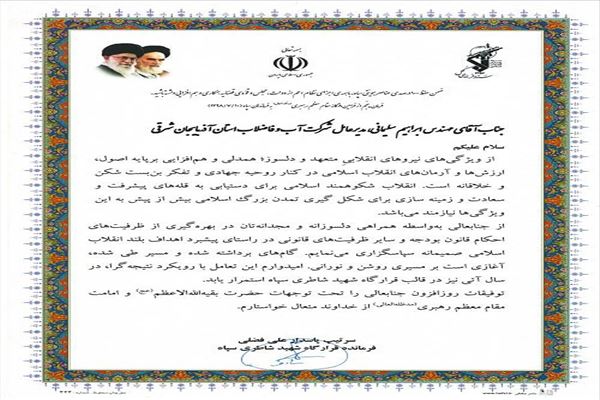 جمهوری اسلامی ایران
جناب آقای مهندس ابراهیم سلیمانی، مدیرعامل شرکت آب و فاضلاب استان آذربایجان شرقی
سلام علیکم
از ویژگی‌های نیروهای انقلابیِ متعهد و دلسوز؛ همدلی و هم‌افزایی برپایه اصول،
ارزش‌ها و آرمان‌های انقلاب اسلامی در کنار روحیه جهادی و تفکر بن‌بست شکن
و خلاقانه است. انقلاب شکوهمند اسلامی برای دستیابی به قله‌های پیشرفت و
سعادت و زمینه سازی برای شکل گیری تمدن بزرگ اسلامی بیش از پیش به این
ویژگی‌ها نیازمند می‌باشد.
از جنابعالی به‌واسطه همراهی دلسوزانه و مجدانه‌تان در بهره‌گیری از ظرفیت‌های
احکام قانون بودجه و سایر ظرفیت‌های قانونی در راستای پیشبرد اهداف بلند انقلاب
اسلامی صمیمانه سپاسگزاری می‌نمایم. گام‌های برداشته شده و مسیر طی شده،
آغازی است بر مسیری روشن و نورانی. امیدوارم این تعامل با رویکرد نتیجه‌گرا، در
سال آتی نیز در قالب قرارگاه شهید شاطری سپاه استمرار یابد.
توفیقات روزافزون جنابعالی را تحت توجهات حضرت بقیه‌الله‌الاعظم(عج) و امامت
مقام معظم رهبری(مدظله‌العالی) از خداوند متعال خواستارم.
سرتیپ پاسدار علی فضلی
فرمانده قرارگاه شهید شاطری سپاه